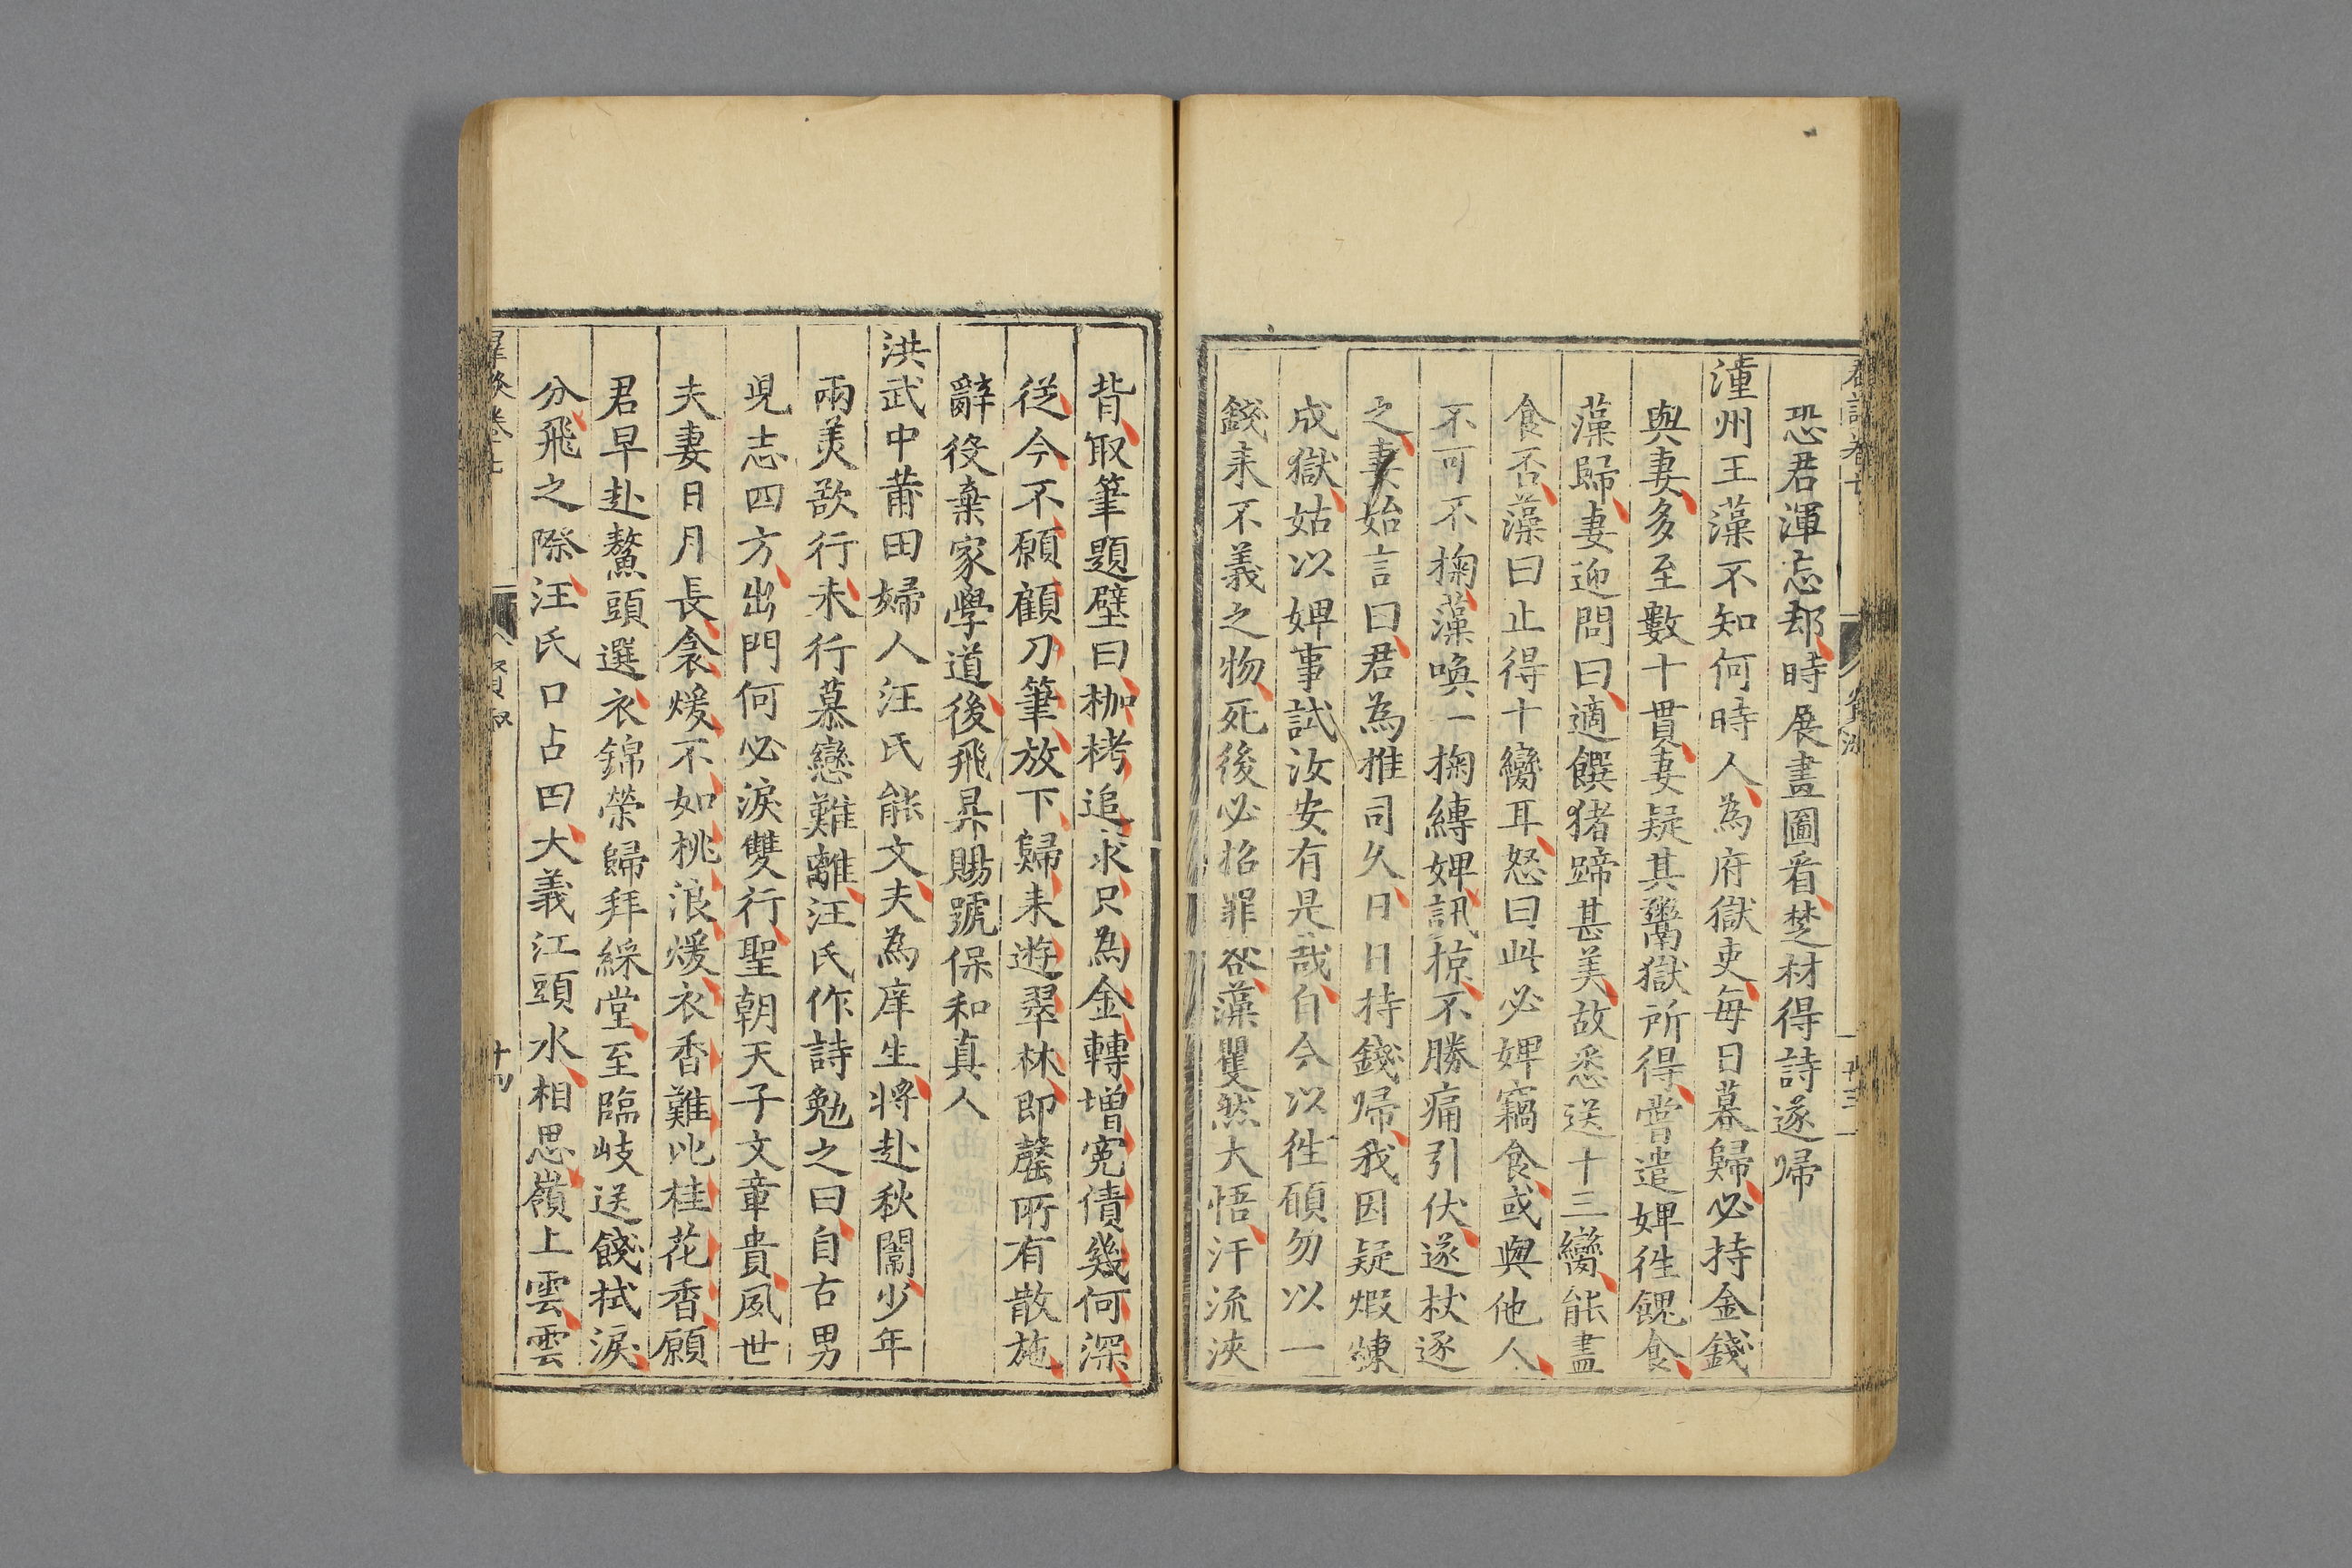 恐君渾忘却時展畫圖看楚材得詩遂歸
潼州王藻不知何時人為府獄吏每日暮歸必持金錢
與妻多至數十貫妻疑其鬻獄所得嘗遣婢徃餽食
藻歸妻迎問曰適饌猪蹄甚美故悉送十三臠能盡
食否藻曰止得十臠耳怒曰此必婢竊食或與他人
不可不掬藻喚一掬縳婢訊掠不勝痛引伏遂杖逐
之妻始言曰君為推司久日日持錢歸我因疑煆煉
成獄姑以婢事試汝安有是哉自今以徃碩勿以一
錢来不義之物死後必招罪愆藻瞿然大悟汗流浹
背取筆題壁曰枷栲追求只為金轉增寃債幾何深
従今不願顧刀筆放下歸来遊翠林即罄所有散施
辭役棄家學道後飛昇賜號保和真人
洪武中莆田婦人汪氏能文夫為庠生將赴秋闈少年
兩美欲行未行慕戀難離汪氏作詩勉之曰自古男
児志四方出門何必淚雙行聖朝天子文章貴夙世
夫妻日月長衾煖不如桃浪煖衣香難比桂花香願
君早赴鰲頭選衣錦榮歸拜綵堂至臨岐送餞拭淚
分飛之際汪氏口占曰大義江頭水相思嶺上雲雲
十四